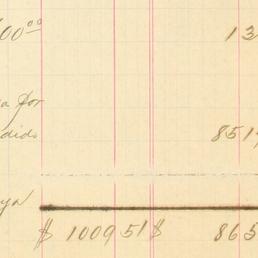 00⁰⁰ 13
a for
dido 8514
ya
$ 1009 51 $ 865